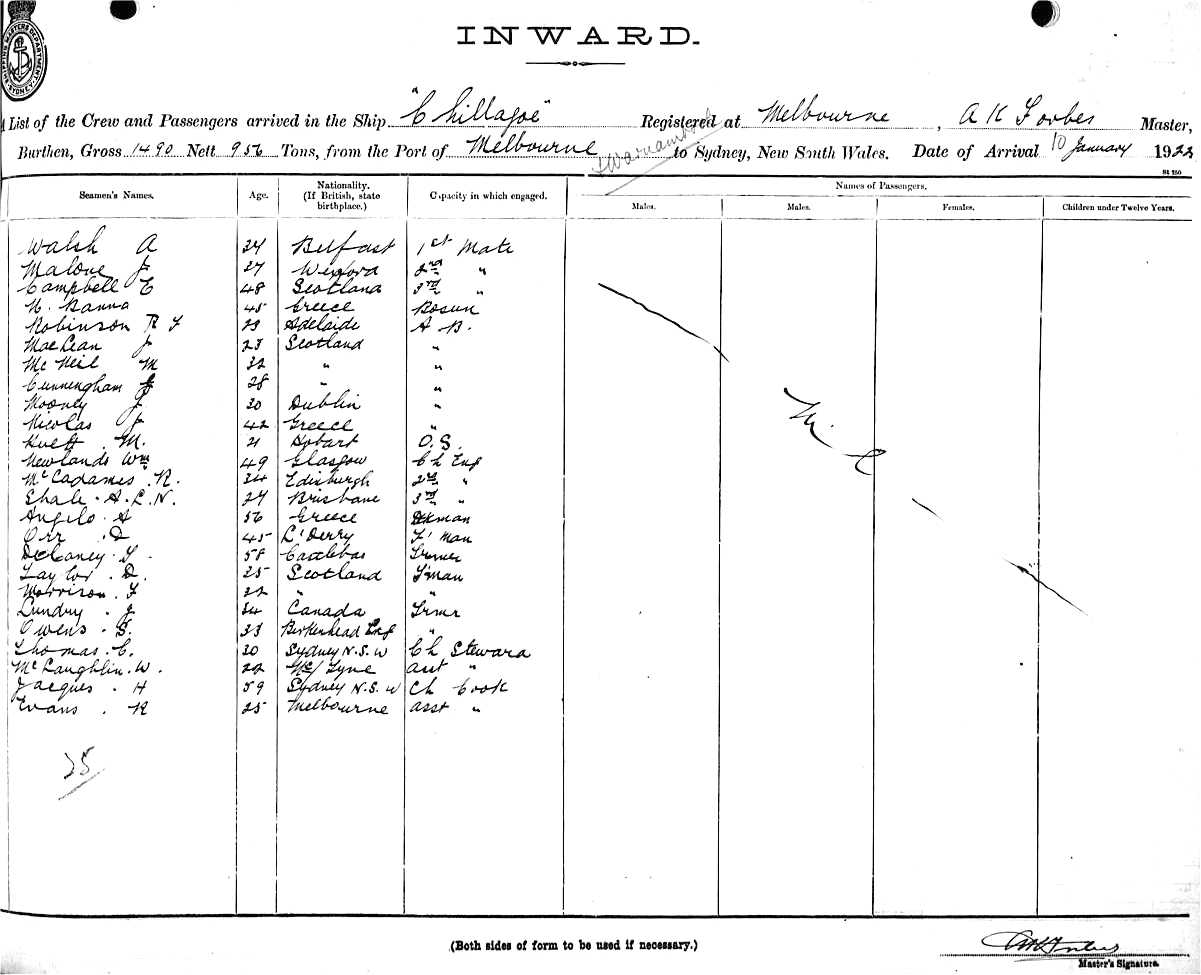 SHIPPING MASTERS DEPARTMENT. SYDNEY
INWARD.
List of the Crew and Passengers arrived in the Ship "Chillagoe" Registered at Melbourne, A K Forbes Master,
Burthen, Gross 1490 Nett 956 Tons, from the Port of Melbourne to Sydney, New South Wales. Date of Arrival 10 January 1922
Seamen's Names. Age. Nationality. (If British, state birthplace.) Capacity in which engaged. Names of Passengers.
Males. Males. Females. Children under Twelve Years.
Walsh A Belfast 1st Mate
Malone J 27 Wexford 2nd "
Campbell C 48 Scotland 3rd "
N. Banna 45 Greece Bosun
Robinson R Adelaide A B.
MacLean J 23 Scotland "
McNeil M 32 " "
Cunningham 28 " "
Mooney J Dublin "
Nicolas J 42 Greece "
M. 21 Hobart O.S.
Newlands Wm 49 Glasgow Ch Eng
McCadames. R. 34 Edinburgh 2nd "
A. L. N. Brisbane 3rd "
Angelo A 56 Greece
Orr D 45 L'Derry F'man
Delaney 58 Castlebar Trmer
Taylor. D. 25 Scotland F'man
Morrison. 22 " "
Lundry. J 34 Canada Trmr
Owens. S. 33 Birkenhead Eng "
Thomas. C. Sydney N.S.W Ch Steward
McLaughlin. W. 22 Nc/ Tyne asst "
Jacques. H 59 Sydney N.S.W Ch Cook
Evans. R 25 Melbourne asst "
Nil
25
(Both sides of form to be used if necessary.)
AK Forbes
Master's Signature.